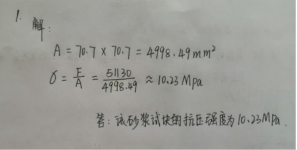 1. 解:
A = 70.7 × 70.7 = 4998.49mm²
σ = F/A = 51130/4998.49 ≈ 10.23Mpa
答: 该砂浆试块的抗压强度为10.23Mpa.